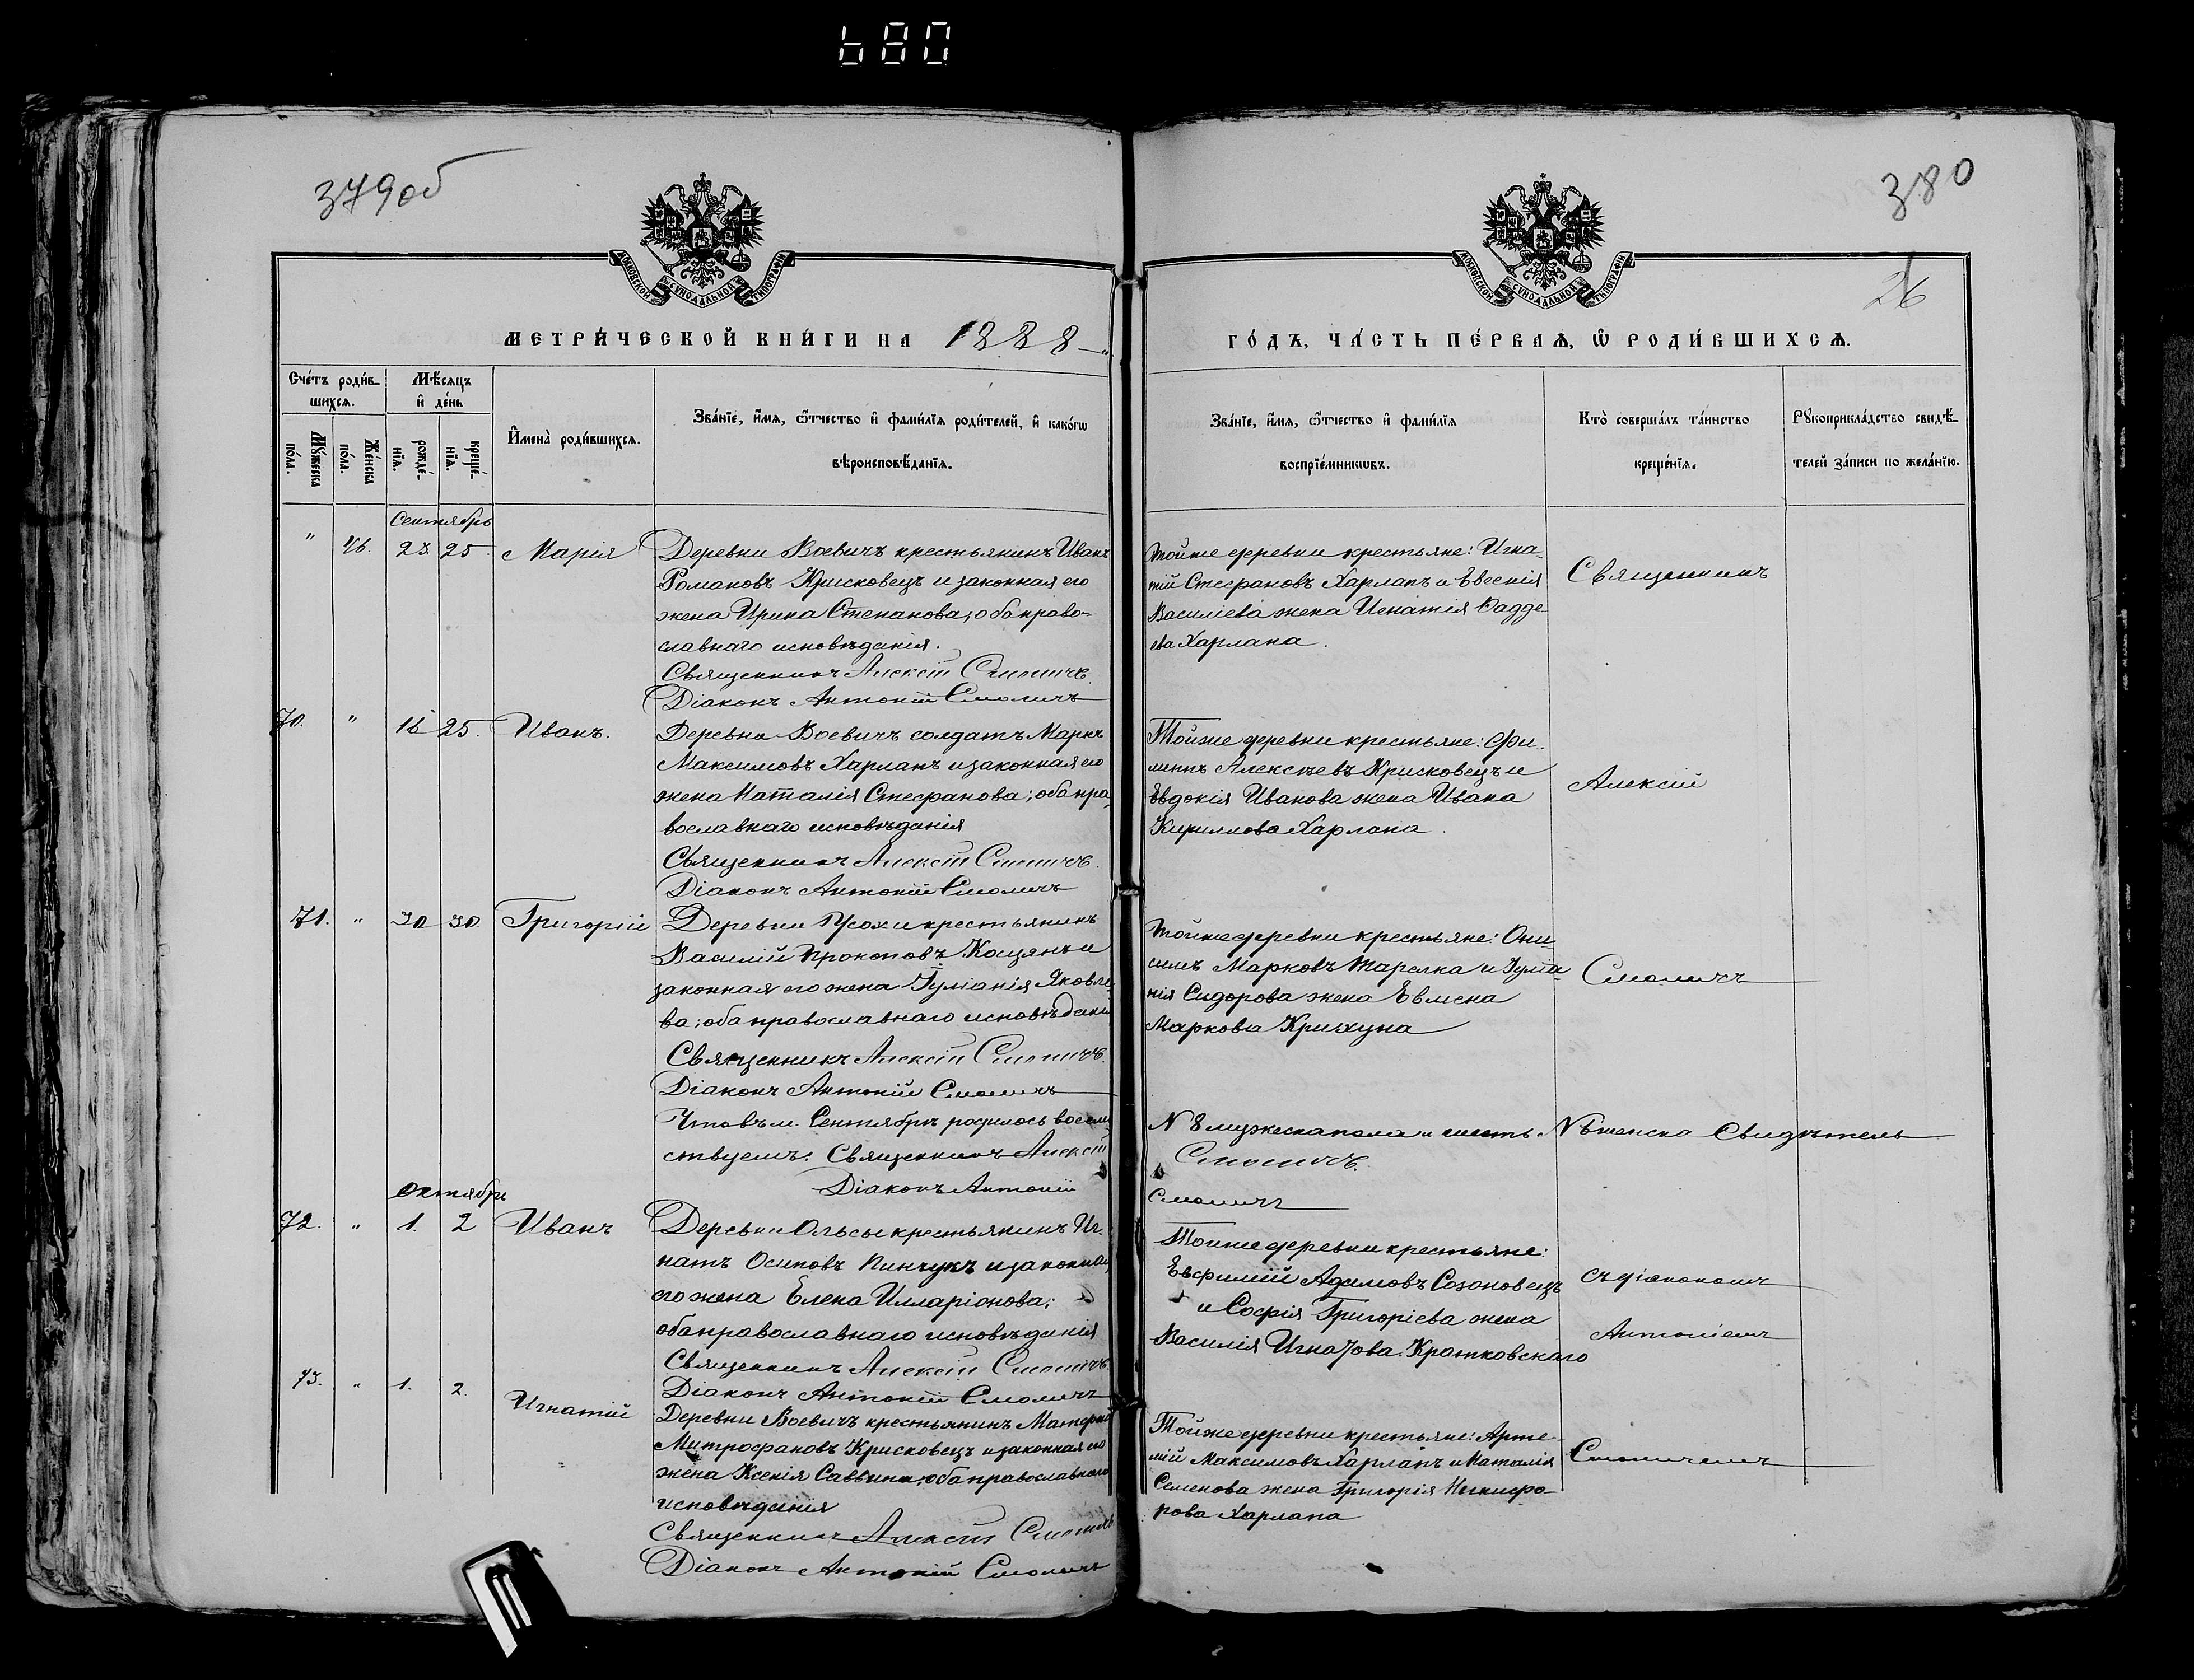 680
379об
380
26
МОСКОВСКОЙ СУНОДАЛЬНОЙ ТИПОГРАФІИ
МОСКОВСКОЙ СУНОДАЛЬНОЙ ТИПОГРАФІИ
МЕТРИ́ЧЕСКОЙ КНИ́ГИ НА 1888
ГО́ДЪ, ЧА́СТЬ ПЕ́РВАѦ, Ѡ҆ РОДИ́ВШИХСѦ.
Сче́тъ роди́в-
шихсѧ.
Мꙋ́жеска
по́ла.
Же́нска
по́ла.
Мѣ́сѧцъ
и҆ де́нь
рожде́-
нїѧ.
креще́-
нїѧ.
И҆мена̀ роди́вшихсѧ.
Зва́нїе, и҆́мѧ, ѻ҆́тчество и҆ фами́лїѧ роди́телей, и҆ како́гѡ
вѣроисповѣ́данїѧ.
Зва́нїе, и҆́мѧ, ѻ҆́тчество и҆ фами́лїѧ
воспрїе́мникѡвъ.
Кто̀ соверша́лъ та́инство
креще́нїѧ.
Рꙋкоприкла́дство свидѣ́-
телей за́писи по жела́нїю.
Сентябрь
" 46. 23. 25. Марія
Деревни Воевичъ крестьянинъ Иванъ
Романовъ Крисковецъ и законная его
жена Ирина Степанова; оба право-
славнаго исповѣданія.
Священникъ Алексій Смоличъ.
Діаконъ Антоній Смоличъ
тойже деревни крестьяне: Игна-
тій Стефановъ Харланъ и Евгенія
Василіева жена Игнатія Фадде-
ева Харлана.
Священникъ
70. " 16 25. Иванъ.
Деревни Воевичъ солдатъ Маркъ
Максимовъ Харланъ и законная его
жена Наталія Стефанова; оба пра
вославнаго исповѣданія
Священникъ Алексій Смоличъ.
Діаконъ Антоній Смоличъ
Тойже деревни крестьяне: Фи-
липъ Алексѣевъ Крисковецъ и
Евдокія Иванова жена Ивана
Кириллова Харлана.
Алексій
71. " 30 30. Григорій
Деревни Усохи крестьянинъ
Василій Прокоповъ и
законная его жена Іуліанія Яковле
ва; оба православнаго исповѣданія
Священникъ Алексій Смоличъ.
Діаконъ Антоній Смоличъ
Тойже деревни крестьяне: Они
симъ Марковъ Тарелка и Іуліа-
нія Сидорова жена Евмена
Маркова
Смоличъ
Что въ м. Сентябрѣ родилось восемь
N 8 мужеска пола и шесть N 6 женска свидѣтель
ствуемъ: Священникъ Алексій
Смоличъ.
Діаконъ Антоній
Смоличъ
Октябрь
72. " 1. 2 Иванъ
Деревни Ольсы крестьянинъ Иг-
натъ Осиповъ Пинчукъ и законная
его жена Елена Илларіонова;
оба православнаго исповѣданія
Священникъ Алексій Смоличъ.
Діаконъ Антоній Смоличъ
Тойже деревни крестьяне:
Евфимій Адамовъ Созоновецъ
и Софія Григоріева жена
Василія Игнатова Кратковскаго
съ діакономъ
Антоніемъ
73. " 1. 2. Игнатій
Деревни Воевичъ крестьянинъ
Митрофановъ Крисковецъ и законная его
жена Ксенія Саввина; оба православнаго
исповѣданія
Священникъ Алексій Смоличъ
Діаконъ Антоній Смоличъ
Тойже деревни крестьяне: Арте-
мій Максимовъ Харланъ и Наталія
Семенова жена Григорія Никифо-
рова Харлана
Смоличемъ